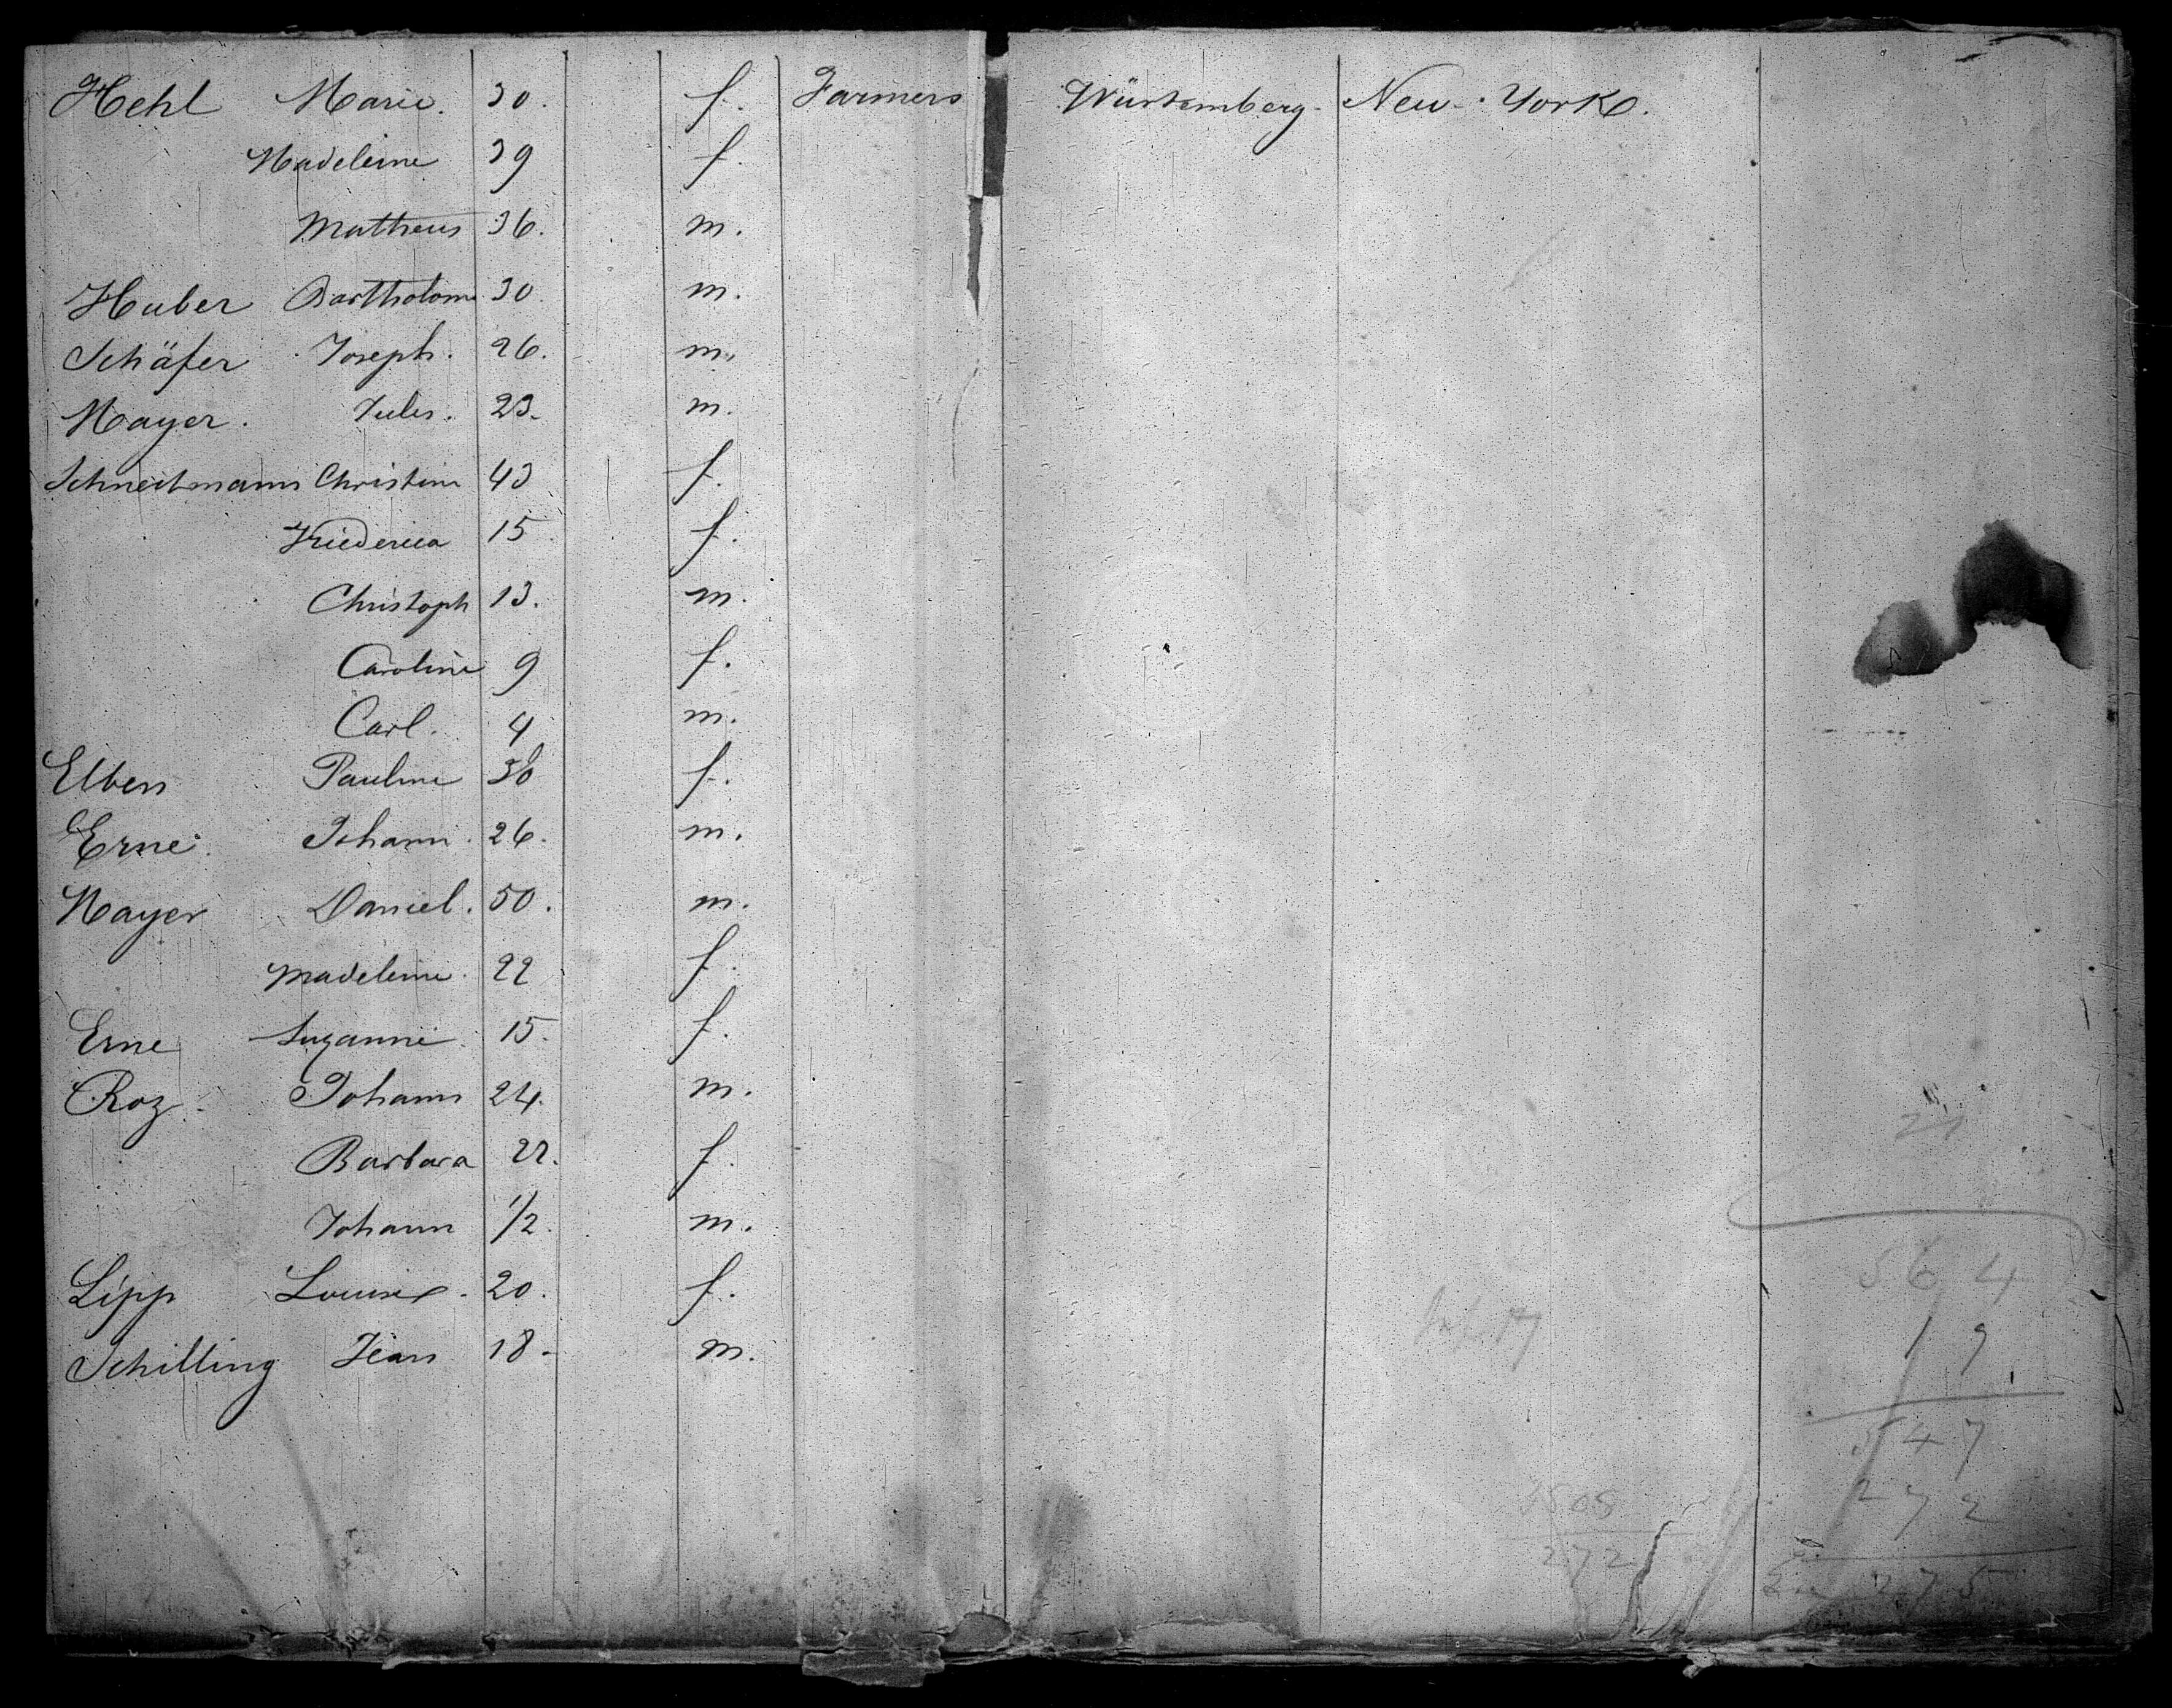 Hehl Marie. 30. f. Farmers Würtemberg. New-York.
Madeleine 39 f.
Mattheus 36. m.
Huber Bartholome 30. m.
Schäfer Joseph. 26. m.
Mayer. Jules. 23. m.
Schneitmann Christine 43 f.
Friedericca 15. f.
Christoph 13. m.
Caroline 9 f.
Carl. 4 m.
Elben Pauline f.
Erne. Johann. 26. m.
Mayer Daniel. 50. m.
Madeleine. 22 f.
Erne Suzanne. 15. f.
Roz. Johann 24. m.
Barbara 22. f.
Johann 1/2. m.
Lipp Louise. 20. f.
Schilling Jean 18. m.
564
19
547
272
272
275